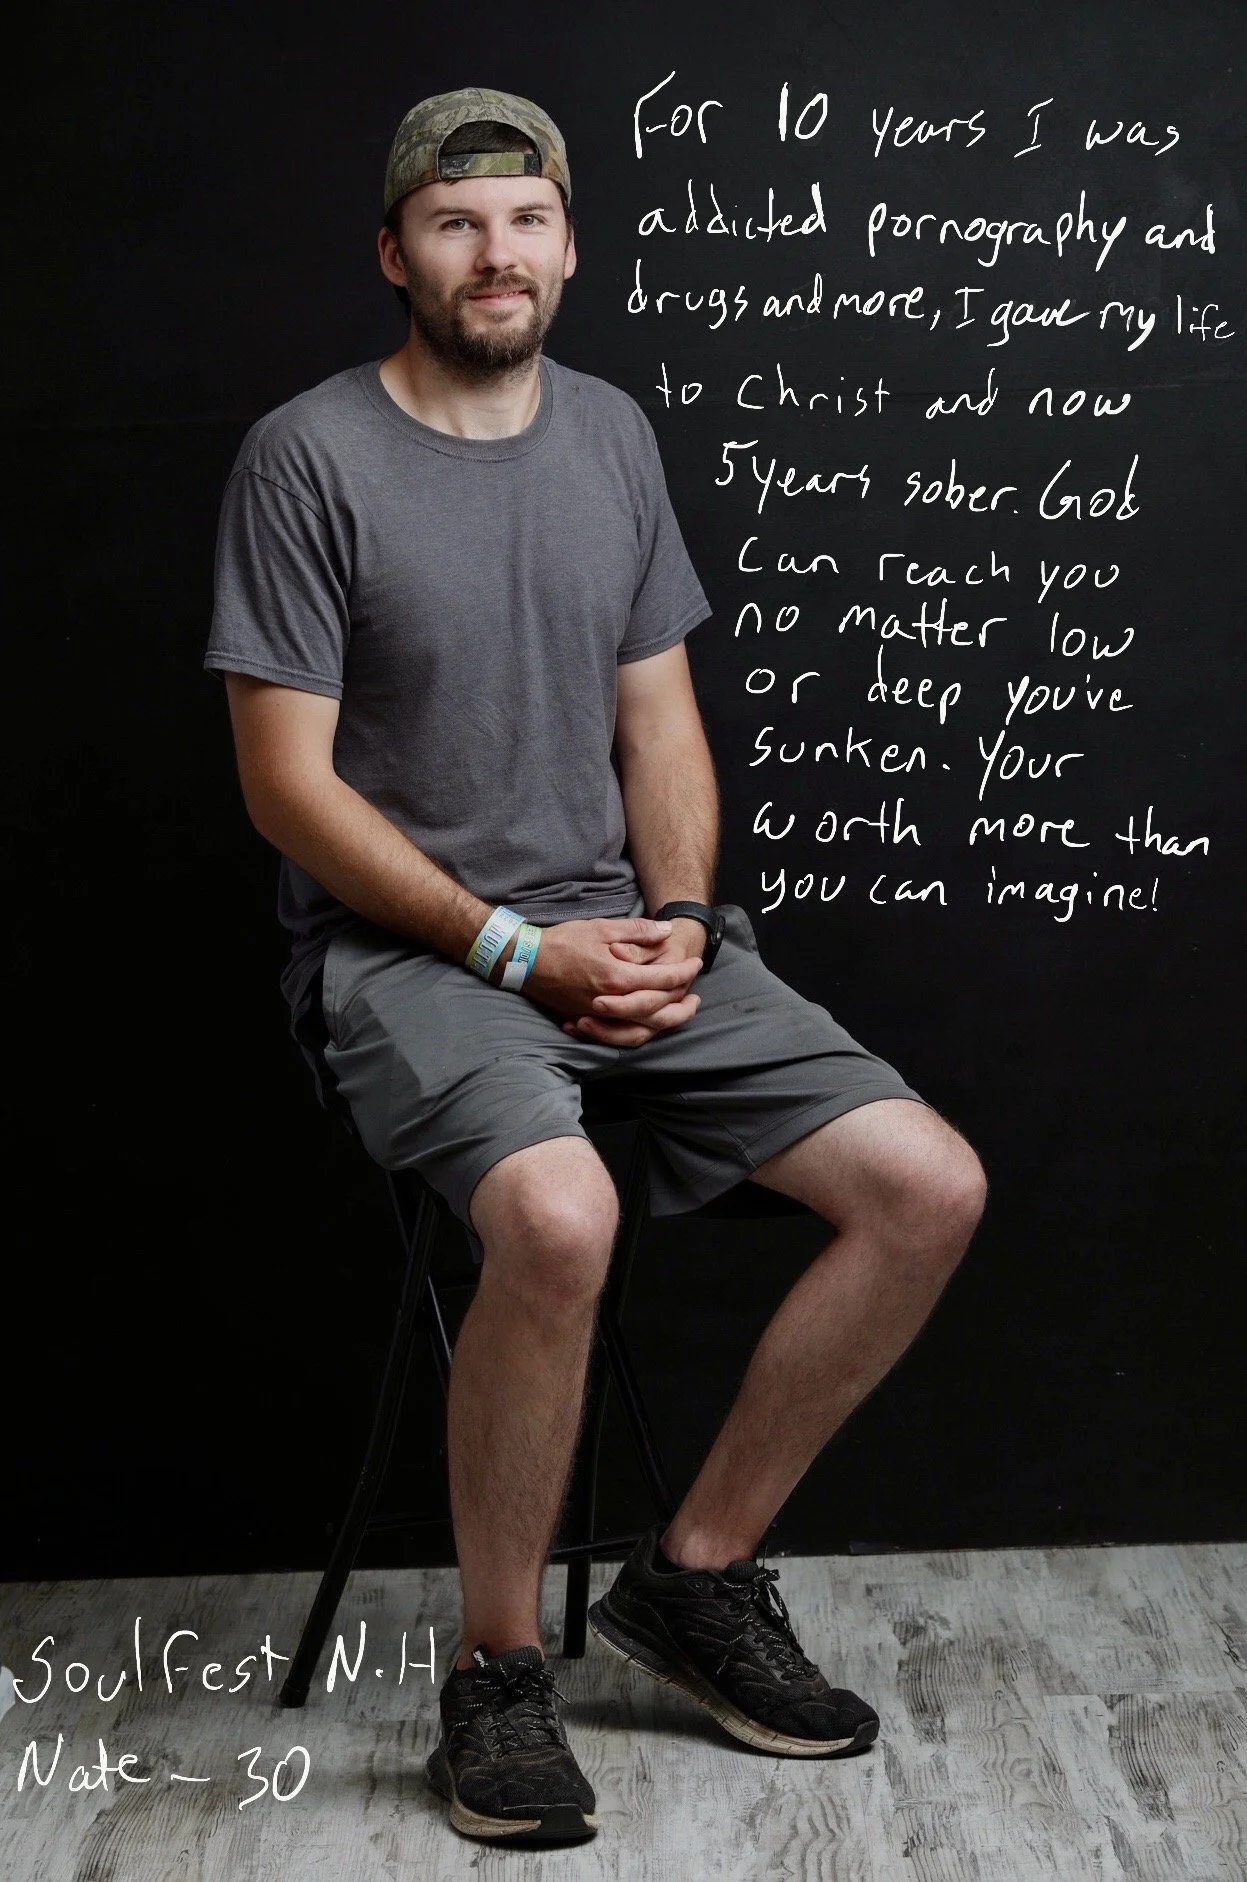 For 10 years I was
addicted pornography and
drugs and more, I gave my life
to Christ and now
5 years sober. God
can reach you
no matter low
or deep you've
sunken. Your
worth more than
you can imagine!
SoulFest N.H
Nate - 30